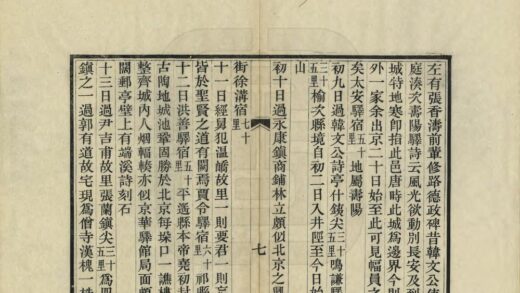 左有張香濤前輩修路德政碑昔韓文公傳
庭湊次壽陽驛詩云風光欲動別長安及到
城特地寒即指此邑唐時此城為邊界今則
外一家余出京二十日始至此可見幅員之
矣太安驛宿五十里地屬壽陽
初九日過韓文公詩亭什鎮尖三十里鳴謙驛
三十五里榆次縣境自初二日入井陘至今日始
山
初十日過永康鎮商鋪林立頗似北京之
七
街徐溝宿七十里
十一日經舅犯溫嶠故里一則要君一則
皆於聖賢之道有闕焉賈令驛宿六十里祁縣
十二日洪善驛宿五十里平遙縣本堯初封
古陶地城池鞏固勝於北京每垜口一譙樓
整齊城內人烟輻輳亦似京華驛館局面
闊郵亭壁上有端溪詩刻石
十三日過尹吉甫故里張蘭鎮尖三十五里為四
鎮之一過郭有道故宅現為僧寺漢槐一